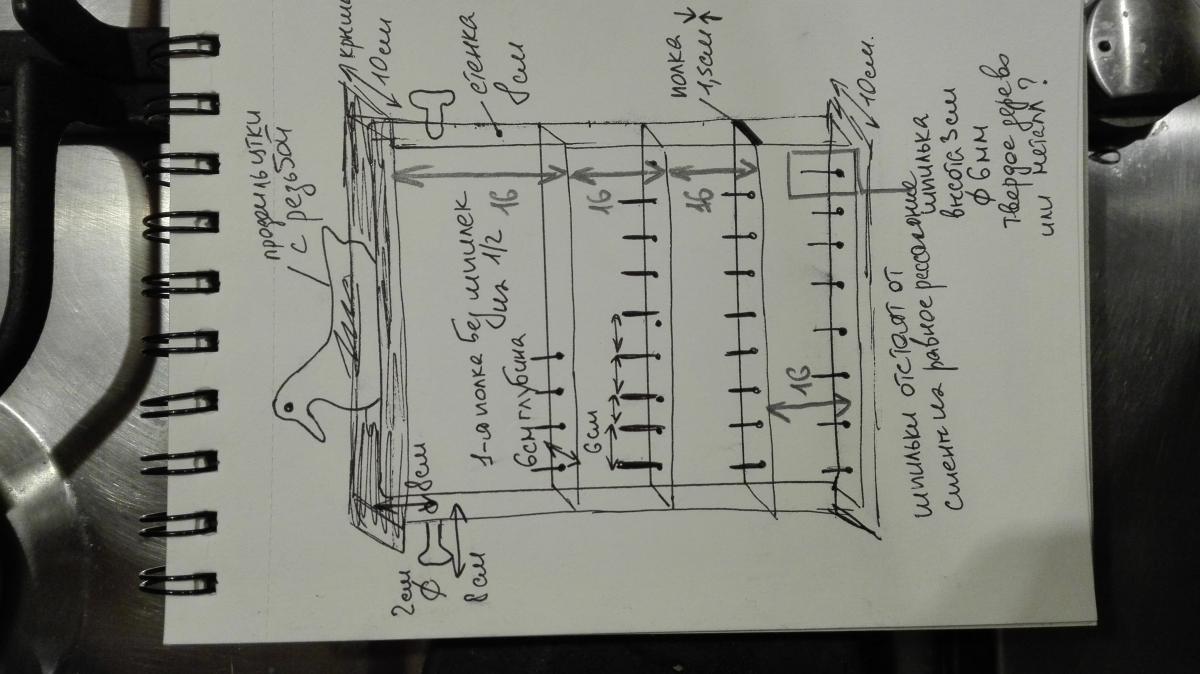 продоль утки
с резьбой
крыша
10см
стенка
8см
полка
1,5см
10см.
8см
2см
Ф
8см
1-я полка без шпилек
на 1/2
6см глубина
6см
16
16
16
16
шпилька
высота 3см
Ф 6мм
твердое дерево
или металл?
шпильки отстоят от
стенки на равное